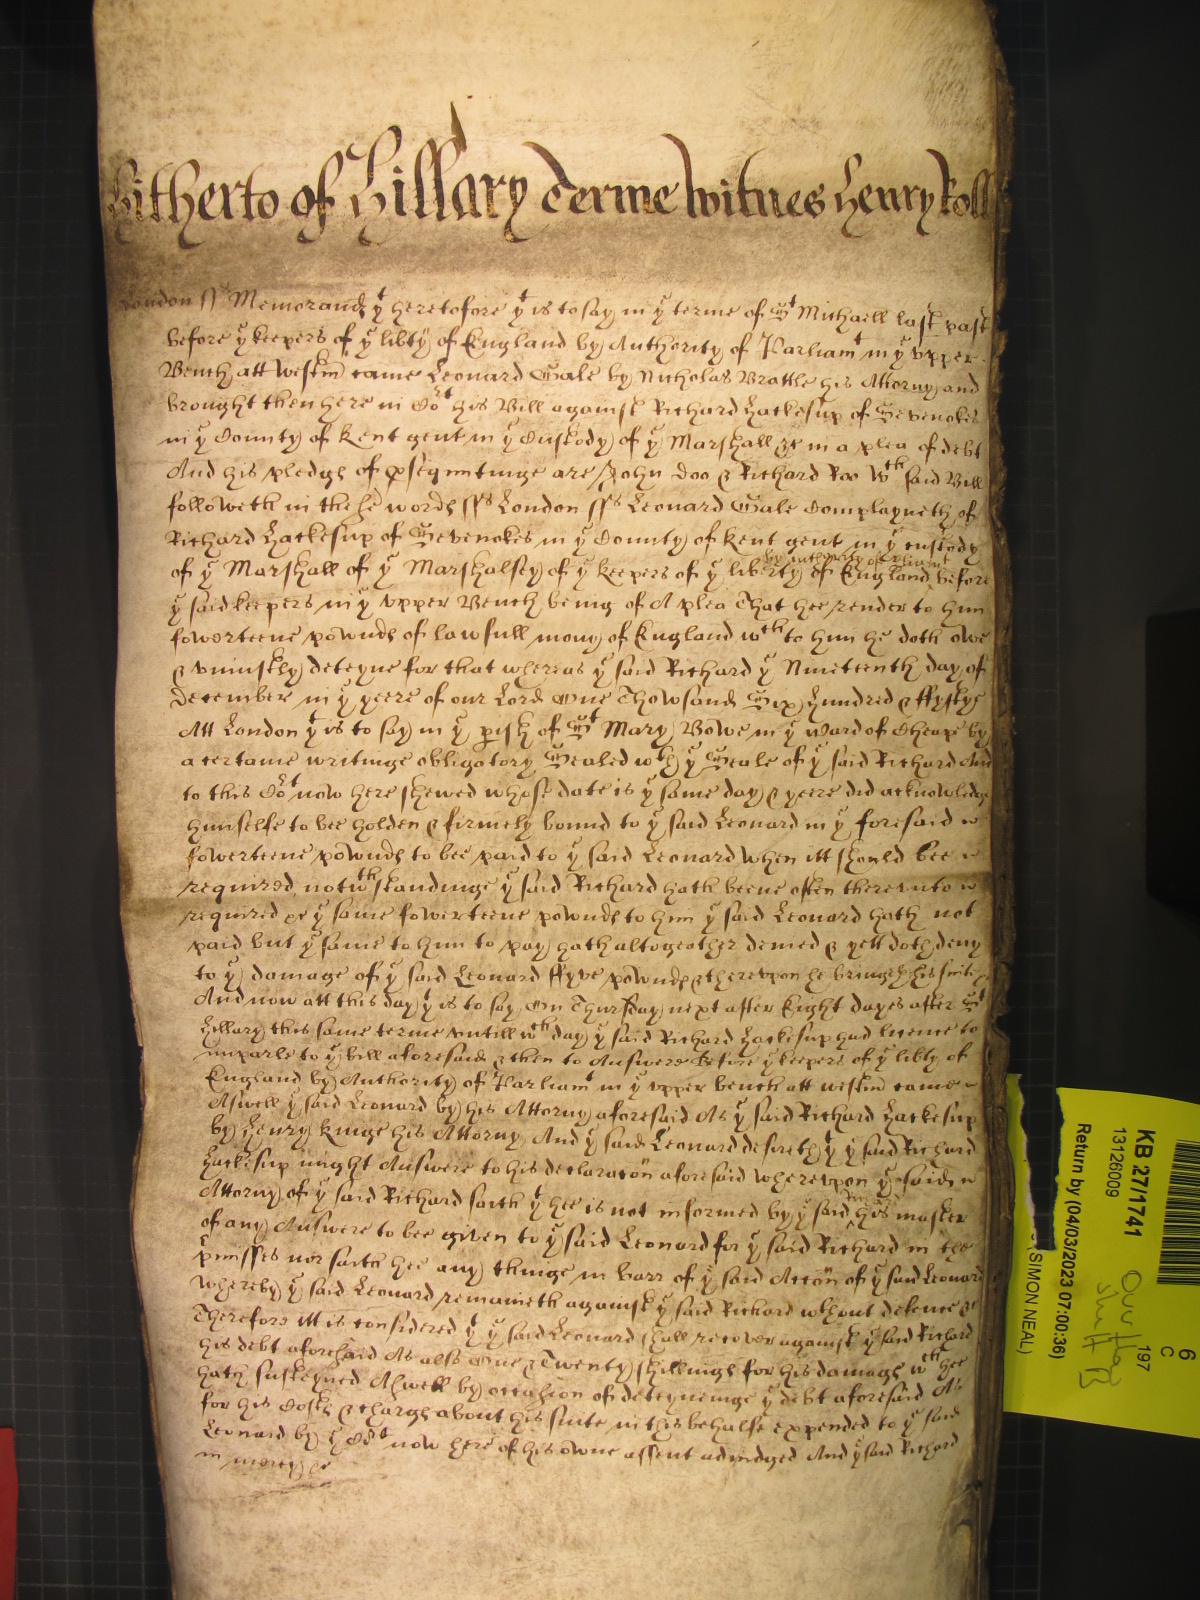 Hitherto of Hillary Terme Witnes Henry Roll
London ss Memorand yt heretofore yt is to say in ye terme of St Michaell last past
before ye keepers of ye libty of England by Authority of Parliamt in ye vpper
Bench att Westm came Leonard Gale by Nicholas Brattle his Attorny and
brought then here in Cot his Bill against Richard Hackesup of Sevenokes
in ye County of Kent gent in ye Custody of ye Marshall &c in a plea of debt
And his pledgs of psequutinge are John Doo & Richard Roo wch said Bill
followeth in these words sss London sss Leonard Gale Complayneth of
Richard Hackesup of Sevenokes in ye County of Kent gent in ye custody
of ye Marshall of ye Marshalsey of ye keepers of ye liberty of England by authority of pliamt before
ye said keepers in ye vpper Bench being of A plea That hee render to him
fowerteene pownds of lawfull mony of England wch to him he doth owe
& vniustly deteyne for that whereas ye said Richard ye Nineteenth day of
December in ye yeere of our Lord One Thowsand Six Hundred & ffyfty
Att London yt is to say in ye pish of St Mary Bowe in ye Ward of Cheape by
a certaine writinge obligatory Sealed wth ye Seale of ye said Richard And
to this Cot now here shewed whose date is ye same day & yeere did acknowledge
himselfe to bee holden & firmely bound to ye said Leonard in ye foresaid
fowerteene pownds to bee paid to ye said Leonard when itt should bee
required notwthstandinge ye said Richard hath beene often therevnto
required &c ye same fowerteene pownds to him ye said Leonard hath not
paid but ye same to him to pay hath altogeather denied & yett doth deny
to ye damage of ye said Leonard ffyve pownds & therevpon he bringeth his suite
And now att this day yt is to say On Thursday next after Eight dayes after St
Hillary this same terme vntill wch day ye said Richard Hackesup had licence to
imparle to ye bill aforesaid & then to Answere Before ye keepers of ye libty of
England by Authority of Parliamt in ye vpper bench att westm came
Aswell ye said Leonard by his Attorny aforesaid As ye said Richard Hackesup
by Henry Kinge his Attorny And ye said Leonard desireth yt ye said Richard
Hackesup might Answere to his declaracon aforesaid wherevpon ye said
Attorny of ye said Richard saith yt hee is not informed by ye said his master
of any Answere to bee given to ye said Leonard for ye said Richard in the
pmisses nor saith hee any thinge in barr of ye said Accon of ye said Leonard
whereby ye said Leonard remaineth against ye said Richard wthout defence &c
Therefore itt is considered yt ye said Leonard shall recover against ye said Richard
his debt aforesaid As also One & Twenty shillings for his damags wch hee
hath susteyned Aswell by occasion of deteyneinge ye debt aforesaid As
for his Costs & chargs about his suite in this behalfe expended to ye said
Leonard by ye Cot now here of his owne assent adiudged And ye said Richard
in mercy &c
KB 27/1741
13126009
Return by (04/03/2023 07:00:36)
(SIMON NEAL)
197
6
C